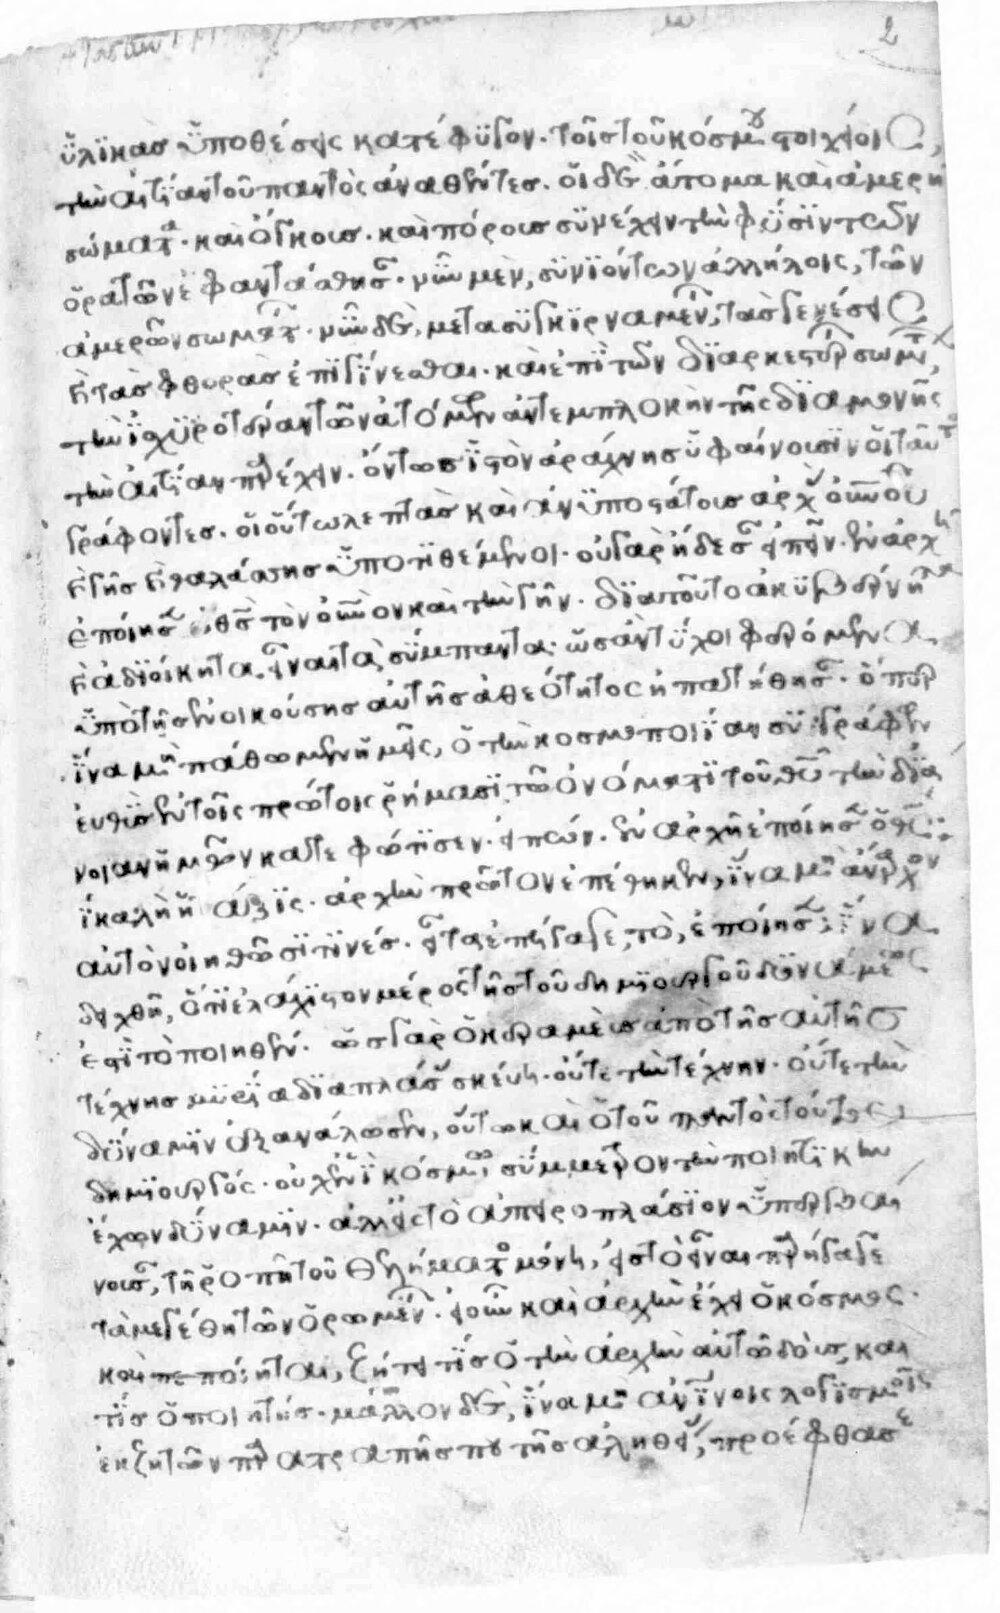 ὑλικὰς ὑποθέσεις κατέφυγον· τοῖς τοῦ κόσμου στοιχείοις,
τὴν αἰτίαν τοῦ παντὸς ἀναθέντες· οἱ δὲ ἄτομα καὶ ἀμερῆ
σώματα· καὶ ὄγκους· καὶ πόρους συνέχειν τὴν φύσιν τῶν
ὁρατῶν ἐφαντάσθησαν· νῦν μὲν, συνιόντων ἀλλήλοις, τῶν
ἀμερῶν σωμάτων· νῦν δὲ, μετασυγκιρναμένων, τὰς γενέσεις
καὶ τὰς φθορὰς ἐπιγίνεσθαι· καὶ ἐπὶ τῶν διαρκεστέρων σωμάτων,
τὴν ἰσχυροτέραν τῶν ἀτόμων ἀντεμπλοκὴν τῆς διαμονῆς
τὴν αἰτίαν παρέχειν· ὄντως ἱστὸν ἀράχνης ὑφαίνουσιν οἱ ταῦτα
γράφοντες· οἱ οὕτω λεπτὰς καὶ ἀνυποστάτους ἀρχὰς οὐρανοῦ
καὶ γῆς καὶ θαλάσσης ὑποτιθέμενοι· οὐ γὰρ ᾔδεσαν εἰπεῖν· ἐν ἀρχῇ
ἐποίησεν ὁ θεὸς τὸν οὐρανὸν καὶ τὴν γῆν· διὰ τοῦτο ἀκυβέρνητα
καὶ ἀδιοίκητα εἶναι τὰ σύμπαντα· ὡσὰν τύχῃ φερόμενα
ὑπὸ τῆς ἐνοικούσης αὐτοῖς ἀθεότητος ἠπατήθησαν· ὅπερ
ἵνα μὴ πάθωμεν ἡμεῖς, ὁ τὴν κοσμοποιίαν συγγράφων
εὐθὺς ἐν τοῖς πρώτοις ῥήμασι τῷ ὀνόματι τοῦ θεοῦ τὴν διά
νοιαν ἡμῶν κατεφώτισεν· εἰπών· ἐν ἀρχῇ ἐποίησεν ὁ θεός:
ἡ καλὴ ἡ τάξις· ἀρχὴν πρῶτον ἐπέθηκεν, ἵνα μὴ ἄναρχον
αὐτὸν οἰηθῶσί τινές· εἶτα ἐπήγαγε, τὸ, ἐποίησεν· ἵνα
δειχθῇ, ὅτι ἐλάχιστον μέρος τῆς τοῦ δημιουργοῦ δυνάμεως
ἐστὶ τὸ ποιηθέν· ὡς γὰρ ὁ κεραμεὺς ἀπὸ τῆς αὐτῆς
τέχνης μυρία διαπλάσας σκεύη· οὔτε τὴν τέχνην· οὔτε τὴν
δύναμιν ἐξανάλωσεν, οὕτω καὶ ὁ τοῦ παντὸς τούτου
δημιουργός· οὐχ ἑνὶ κόσμῳ, σύμμετρον τὴν ποιητικὴν
ἔχων δύναμιν· ἀλλ' εἰς τὸ ἀπειροπλάσιον ὑπερβαί
νουσαν, τῇ ῥοπῇ τοῦ θελήματος μόνῃ, εἰς τὸ εἶναι παρήγαγε
τὰ μεγέθη τῶν ὁρωμένων· εἰ οὖν καὶ ἀρχὴν ἔχει ὁ κόσμος·
καὶ πεποίηται, ζήτει τίς ὁ τὴν ἀρχὴν αὐτῷ δοὺς, καὶ
τίς ὁ ποιητής· μᾶλλον δὲ, ἵνα μὴ ἀνθρωπίνοις λογισμοῖς
ἐκζητῶν παρατραπῇς που τῆς ἀληθείας, προέφθασε